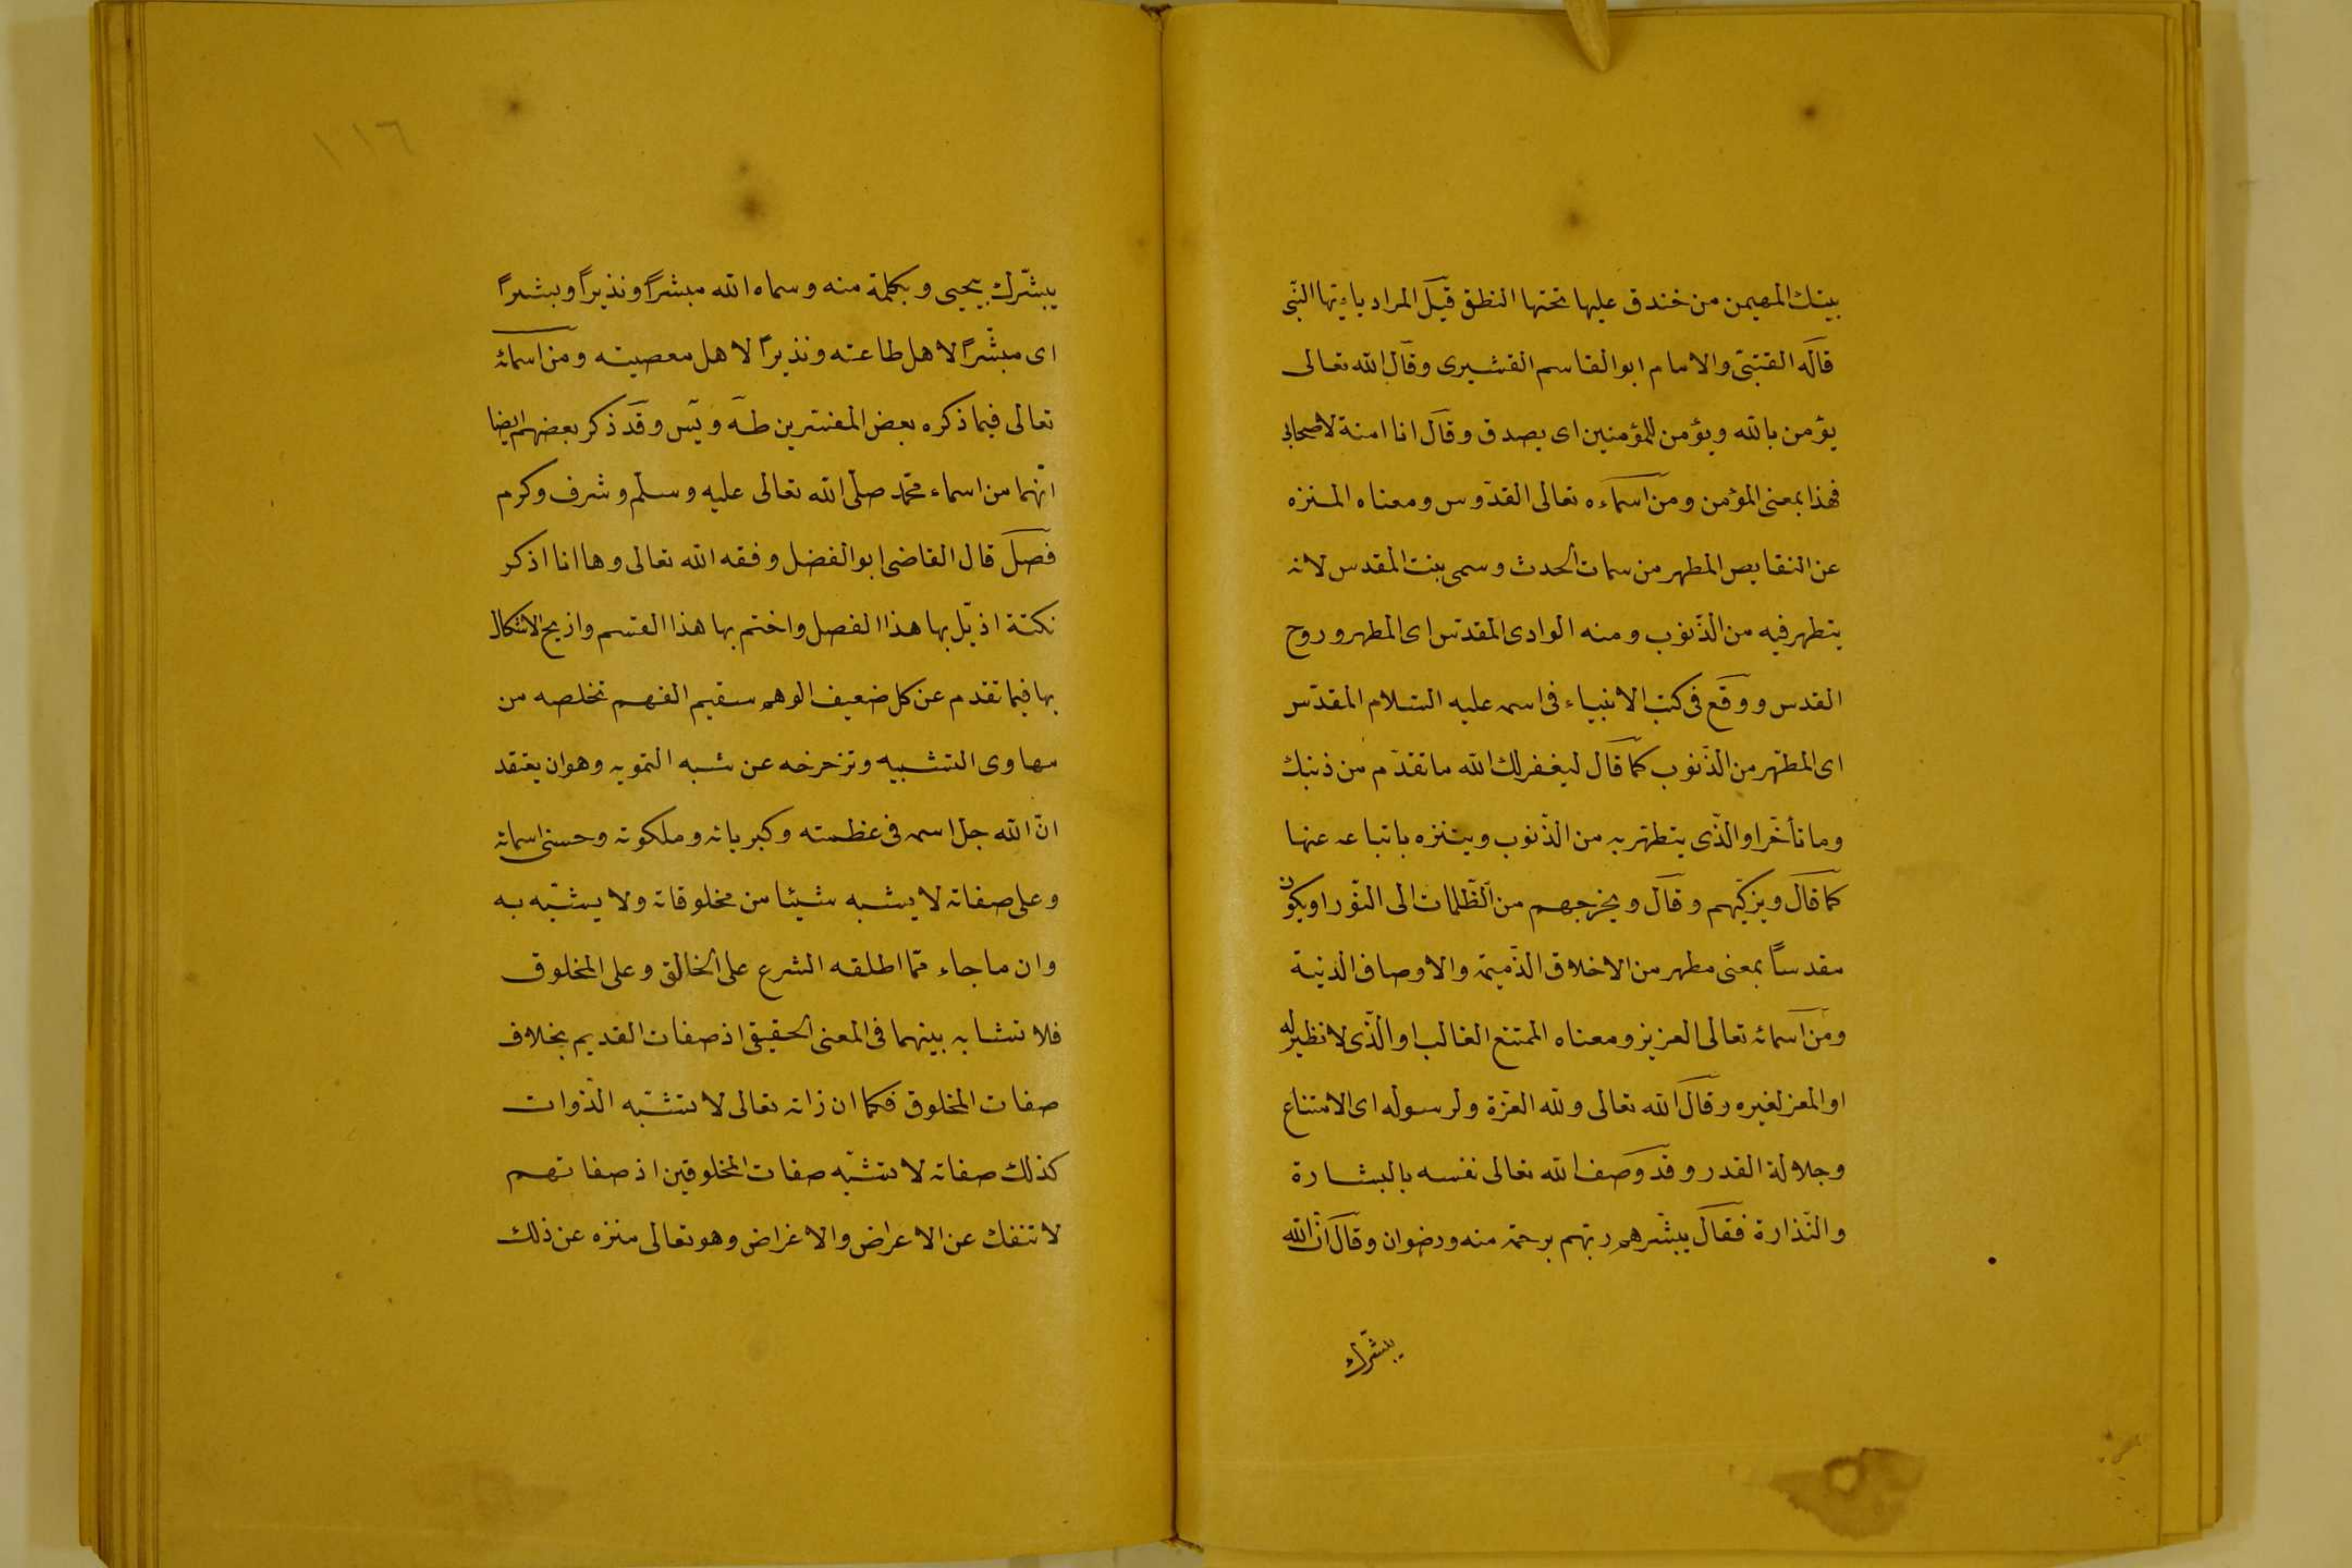 بيتك المهيمن من خندق عليها تحتها النطق قيل المراد يا ايها النبى
قاله القتبىّ والامام ابو القاسم القشيرى وقال الله تعالى
يؤمن بالله ويؤمن للمؤمنين اى يصدق وقال انا امنة لاصحابى
فهذا بمعنى المؤمن ومن اسماءه تعالى القدّوس ومعناه المنزه
عن النقايص المطهر من سمات الحدث وسمى بيت المقدس لانه
يتطهر فيه من الذّنوب ومنه الوادى المقدّس اى المطهر وروح
القدس ووقع فى كتب الانبياء فى اسمه عليه السّلام المقدّس
اى المطهّر من الذّنوب كما قال ليغفر لك الله ما تقدّم من ذنبك
وما تأخّر او الذّى يتطهّر به من الذّنوب ويتنزه باتباعه عنها
كما قال ويزكّيهم وقال ويخرجهم من الظّلمات الى النّور او يكون
مقدساً بمعنى مطهر من الاخلاق الذّميمّة والاوصاف الدّنية
ومن اسمائه تعالى العزيز ومعناه الممتنع الغالب او الّذى لا نظير له
او المعز لغيره وقال الله تعالى ولله العزّة ولرسوله اى الامتناع
وجلالة القدر وقد وصف الله تعالى نفسه بالبشارة
والنّذارة فقال يبشّرهم ربّهم برحمة منه ورضوان وقال انّ الله
يبشّرك
١١٦
يبشّرك بيحيى وبكلمة منه وسماه الله مبشراً ونذيراً وبشيراً
اى مبشّراً لاهل طاعته ونذيراً لاهل معصيته ومن اسمائه
تعالى فيما ذكره بعض المفسّرين طه ويس وقد ذكر بعضهم ايضا
انّهما من اسماء محمّد صلّى الله تعالى عليه وسلّم وشرف وكرم
فصل قال القاضى ابو الفضل وفقه الله تعالى وها انا اذكر
نكتة اذيّل بها هذا الفصل واختم بها هذا القسم وازيح الاشكال
بها فيما تقدم عن كل ضعيف الوهم سقيم الفهم تخلصه من
مهاوى التّشبيه وتزحزحه عن شبه التمويه وهو ان يعتقد
انّ الله جل اسمه فى عظمته وكبريائه وملكوته وحسنى اسمائه
وعلى صفاته لا يشبه شيئا من مخلوقاته ولا يشبّه به
وان ما جاء ممّا اطلقه الشرع على الخالق وعلى المخلوق
فلا تشابه بينهما فى المعنى الحقيقى اذ صفات القديم بخلاف
صفات المخلوق فكما ان ذاته تعالى لا تشبّه الذّوات
كذلك صفاته لا تشبّه صفات المخلوقين اذ صفاتهم
لا تنفك عن الاعراض والاغراض وهو تعالى منزه عن ذلك